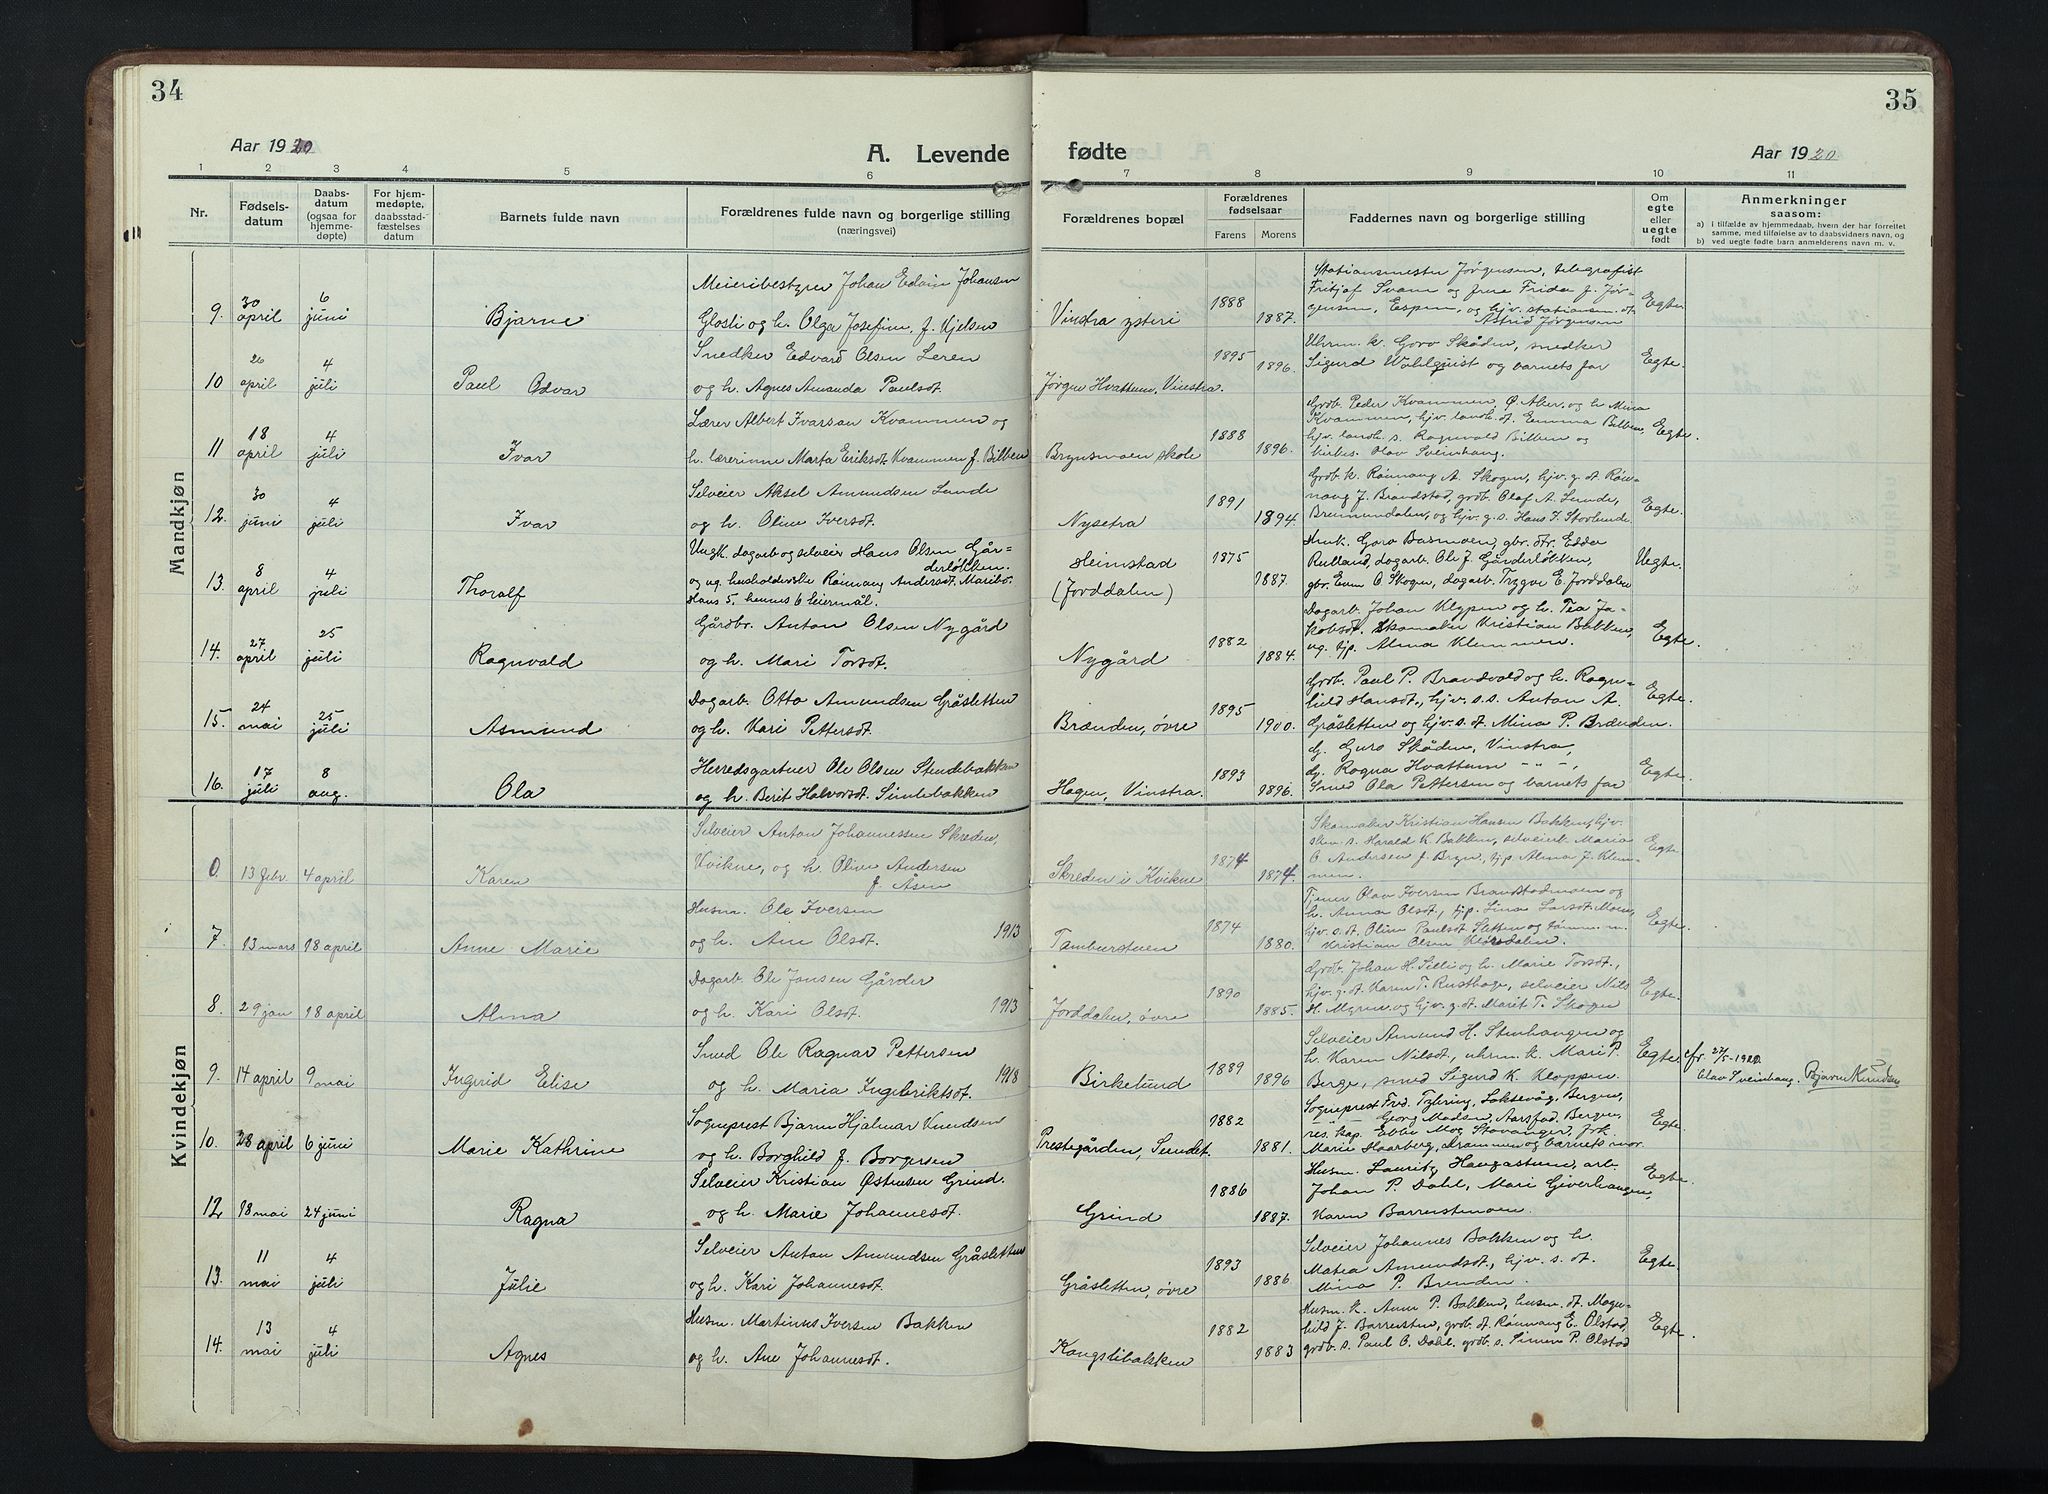 34
35
Aar 1920
A. Levende
fødte
Aar 1920
1 2 3 4 5 6 7 8 9 10 11
Nr.
Fødsels-
datum
Daabs-
datum
(ogsaa for
hjemme-
døpte)
For hjem-
medøpte,
daabsstad-
fæstelses
datum
Barnets fulde navn
Forældrenes fulde navn og borgerlige stilling
(næringsvei)
Forældrenes bopæl
Forældrenes
fødselsaar
Farens Morens
Faddernes navn og borgerlige stilling
Om
egte
eller
uegte
født
Anmerkninger
saasom:
a) i tilfælde av hjemmedaab, hvem der har forrettet
samme, med tilføielse av to daabsvidners navn, og
b) ved uegte fødte barn anmelderens navn m. v.
Mandkjøn
9. 30 april 6 juni Bjarne
Meieribestyrer Johan Edvin Johansen
Glosli og h. Olga Josefine f. Kjelsen
Vinstra ysteri 1888 1887.
Stationsmester Jørgensen, telegrafist
Fritjof Svann og frue Frida f. Jør-
gensen, Espen, og hjv. stationsm. dt.
Astrid Jørgensen
Egte.
10 26 april 4 juli Paul Odvar
Snedker Edvard Olsen Leren
og h. Agnes Amanda Paulsdt.
Jørgen Hvattum, Vinstra. 1895 1896.
Uhrm. k. Goro Skåden, snedker
Sigurd Wahlquist og barnets far
Egte.
11 18 april 4 juli Ivar
Lærer Albert Ivarsan Kvammen og
h. lærerinne Marta Eriksdt. Kvammen f. Bilben
Brynsmoen skole 1888 1896.
Grdb. Peder Kvammen, Ø. Aker, og h. Mina
Kvammen, hjv. landh. dt. Emma Bilben,
hjv. landh. s. Ragnvald Bilben og
kirkes. Olav Sveinhaug.
Egte.
12. 30 juni 4 juli Ivar
Selveier Aksel Amundsen Lunde
og h. Oline Iversdt.
Nysetra 1891 1894.
Grdb. k. Rønnaug A. Skogen, hjv. g. dt. Røn-
naug J. Brandstad, grdb. Olaf A. Lunde,
Brennundalen, og hjv. g. s. Hans I. Storlunde.
Egte.
13. 8 april 4 juli Thoralf
Ungk. dagarb. og selveier Hans Olsen Går-
derløkken.
og ug. husholderske Rønnaug Andersdt. Maribo.
Hans 5. hennes 6 leiermål.
Heimstad
(Jorddalen) 1875 1887.
Hmk. Goro Basmoen, gbr. dtr. Edda
Rulland, dagarb. Ole J. Gårderløkken,
gbr. Even O. Skogen, dagarb. Trygve E. Jorddalen
Uegte.
14. 27 april 25 juli Ragnvald
Gårdbr. Anton Olsen Nygård
og h. Mari Torsdt.
Nygård 1882 1884.
Dagarb. Johan Klypen og h. Tea Ja-
kobsdt. Skomaker Kristian Bakken,
ug. tjp. Alma Klemmen.
Egte.
15. 24 mai 25 juli Asmund
Dagarb. Otto Amundsen Gråsletten
og h. Kari Pettersdt.
Brænden, øvre 1895 1900.
Grdb. Paul P. Brandvold og h. Ragn-
hild Hansdt., hjv. s. s. Anton A.
Gråsletten og hjv. s. dt. Mina P. Brænden.
Egte.
16. 17 juli 8 aug. Ola
Herredsgartner Ole Olsen Stendebakken
og h. Berit Halvorsdt. Sindebakken
Hagen, Vinstra. 1893 1896.
g. Guro Skåden, Vinstra,
g. Ragna Hvattum " " - ,
Smed Ola Pettersen og barnets far
Egte.
Kvindekjøn
0. 13 febr. 4 april Karen
Selveier Anton Johannessen Skreden,
Kvikne, og h. Oline Andersen
f. Åsen
Skreden i Kvikne 1874 1874.
Skomaker Kristian Hansen Bakken, hjv.
skm. s. Harald K. Bakken, selveierk. Maria
O. Andersen f. Bryn, tjp. Alma J. Klem-
men.
Egte
7. 13 mars 18 april Anne Marie
Husm. Ole Iversen
og h. Ane Olsdt. 1913
Tamburstuen 1874 1880.
Tjener Olav Iversen Brandstadmoen og
h. Anna Olsdt., tjp. Lina Larsdt. Moen,
hjv. s. dt. Oline Paulsdt. Sletten og tømm. m.
Kristian Olsen Kleivsdalen.
Egte.
8. 29 jan 18 april Alma
Dagarb. Ole Jonsen Gårder
og h. Kari Olsdt. 1913
Jorddalen, øvre 1890 1885.
Grdb. Johan H. Lilli og h. Marie Torsdt.,
hjv. g. dt. Karen T. Rusthage, selveier Nils
H. Myren og hjv. g. dt. Marit T. Skogen
Egte.
9. 14 april 9 mai Ingrid Elise
Smed Ole Ragnar Pettersen 1918
og h. Maria Ingebriktsdt.
Birkelund 1889 1896
Selveier Amund H. Stenhaugen og
h. Karen Nilsdt., uhrm. k. Mari P.
Berge, smed Sigurd K. Kloppen.
Egte.
cfr. 27/5-1920.
Olav Sveinhaug. Bjarne Knudsen
10. 28 april 6 juni Marie Kathrine
Sogneprest Bjarne Hjalmar Knudsen
og h. Borghild f. Borgersen
Prestegården, Sundet. 1882 1881.
Sogneprest Fred. Tybring, Laksevåg, Bergen,
— " — Georg Madsen, Aarstad, Bergen,
res. kap. Ebbe Mog Stavanger, frk.
Marie Haarberg, Drammen og barnets mor.
Egte.
12. 18 mai 24 juni Ragna
Selveier Kristian Østensen Grind.
og h. Marie Johannesdt.
Grind 1886 1887.
Husm. Lauritz Haugastuen, arb.
Johan P. Dahl, Mari Giverhaugen,
Karen Barrustenoen.
Egte.
13. 11 mai 4 juli Julie
Selveier Anton Amundsen Gråsletten
og h. Kari Johannesdt.
Gråsletten, øvre 1893 1886
Selveier Johannes Bakken og h.
Matea Amundsdt., hjv. s. dt.
Mina P. Brenden.
Egte.
14. 13 mai 4 juli Agnes
Husm. Martinus Iversen Bakken
og h. Ane Johannesdt.
Kongslibakken 1882 1883
Husm. k. Anne P. Bakken, husm. dt. Magn-
hild J. Barrusten, grdb. dt. Rønnaug E. Olstad,
grdb. s. Paul O. Dahl, grdb. s. Simen P. Olstad
Egte.